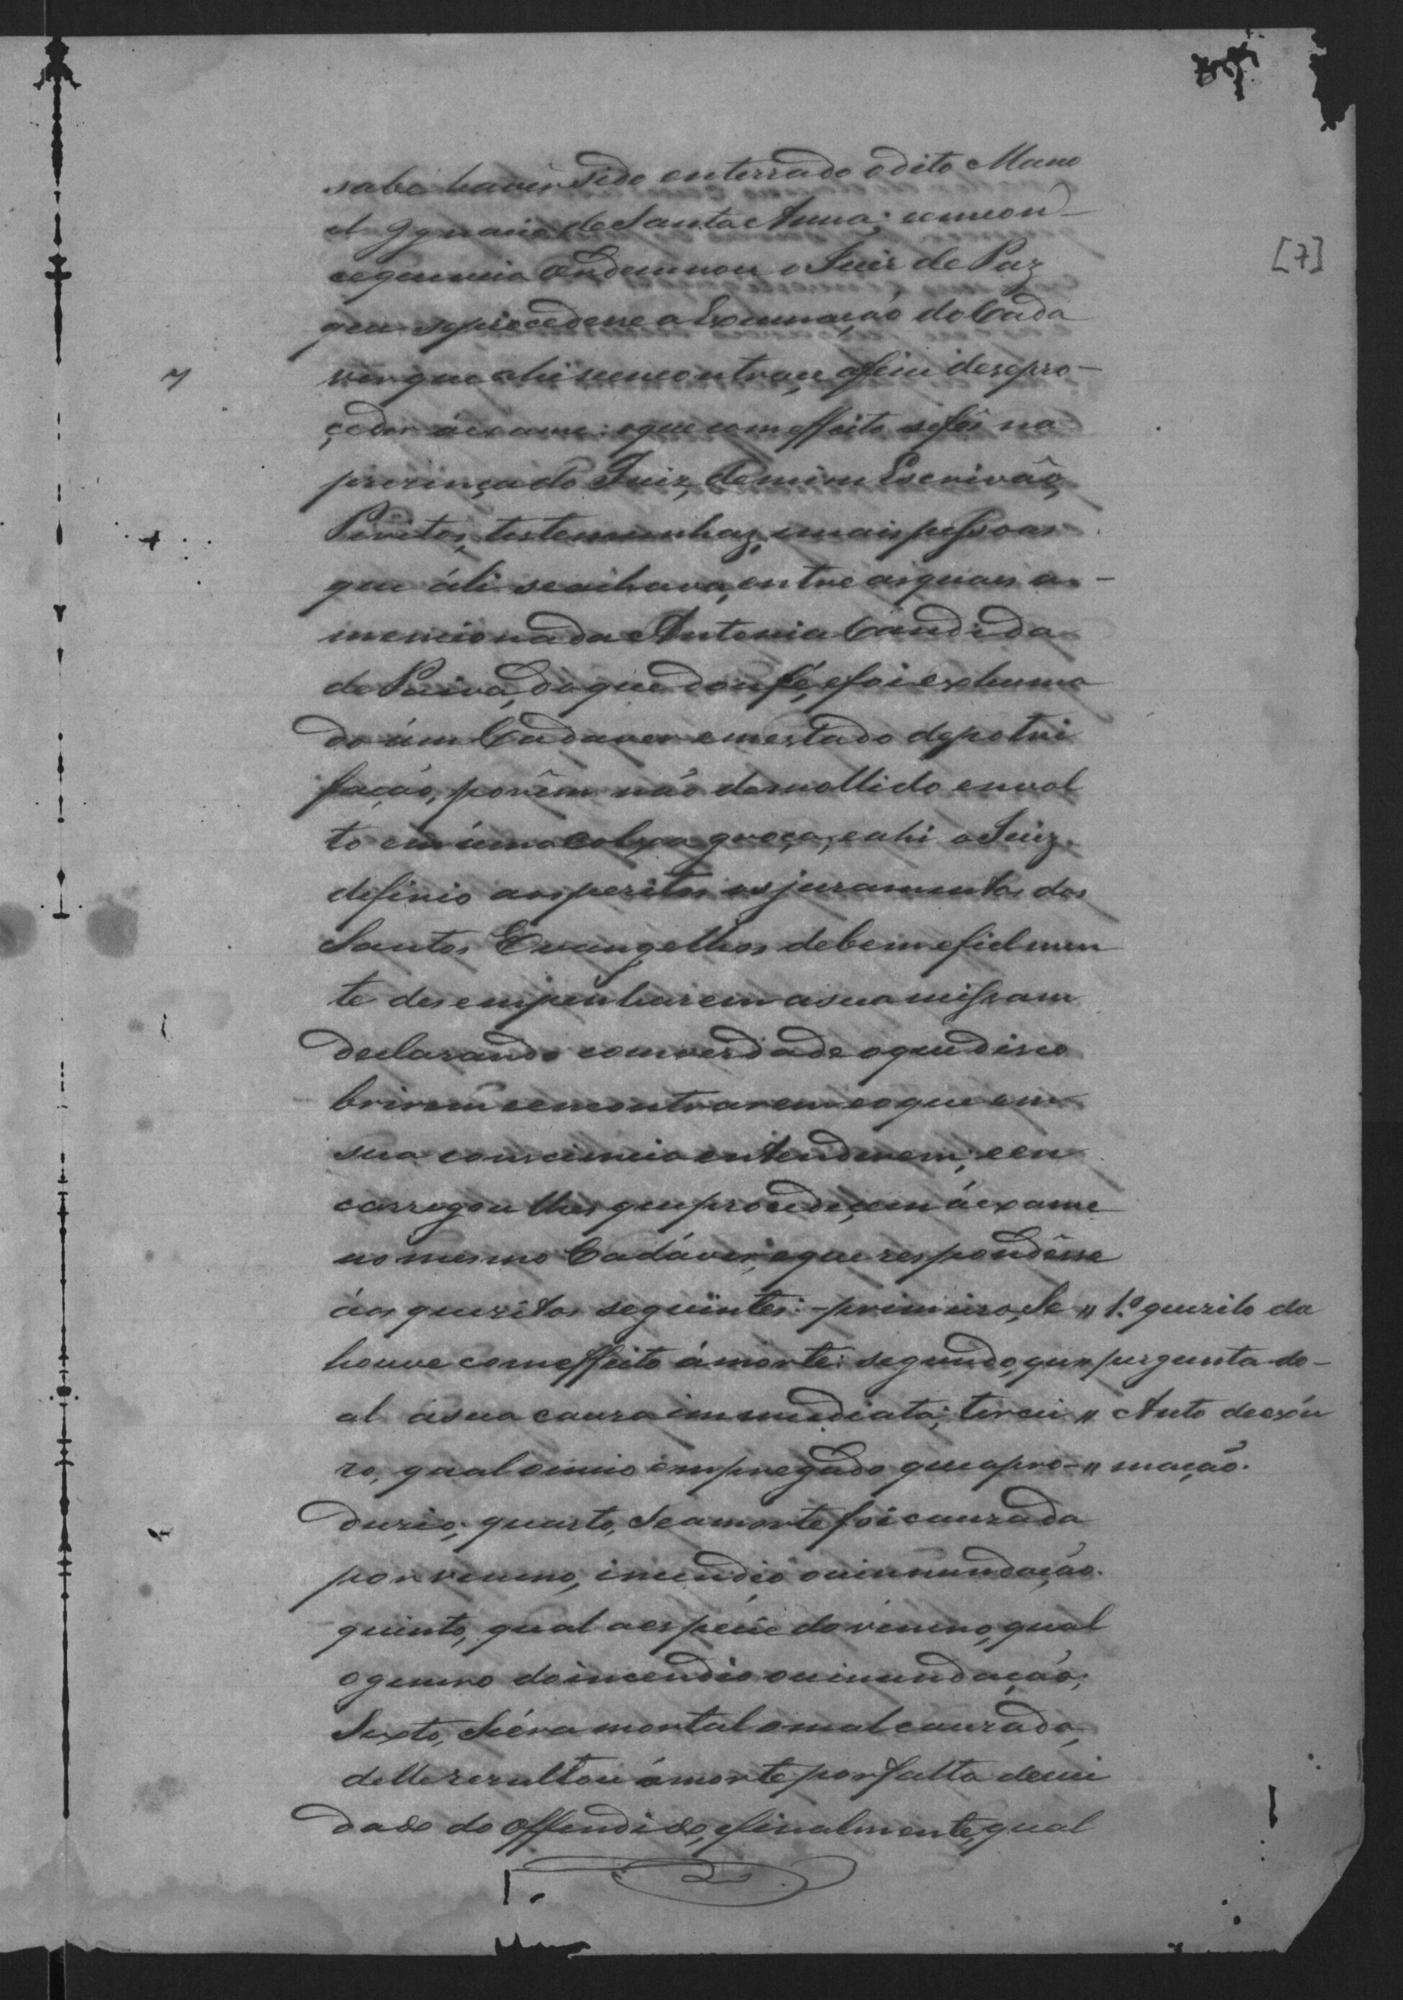 sabe haver sido enterrado o dito Mano
el Ignacio de Santa Anna; e em con-
cequencia Ordennou o Juiz de Paz
que se procedesse a Exumação do Cada
ver que ahi se encontrou, afim de se pro-
çeder á exame: o que com effeito se fês na
prezença do Juiz, de mim Escrivão,
Peritos, testemunhas, e mais pessoas
que áli se achava, entre as quaes a
mencionada Antonia Cândida
de Paiva, do que dou fé, e foi exhuma
do úm Cadaver em estado de potri
façaõ, porêm naõ demollido envol
to em úma colxa groça, e ahi o Juiz
defirio aos peritos os juramentos dos
Santos Evangelhos de bem e fielmen
te desempenharem a sua missam
declarando com verdade o que disco
brirem e encontrarem e o que em
sua consciencia entenderem; e en
carregou lhes que procedeçem á exame
no mesmo Cadáver, e que respondêsse
áos quezitos seguintes: - primeiro, Se
houve com effeito á morte: segundo, qu
al a sua cauza immediata; tercei
ro, qual o meio empregado que a pro-
duzio; quarto, Se a morte foi cauzada
por veneno, incendio ou innundação.
quinto, qual a espécie do veneno, qual
o genero do incendio ou inundação;
Sexto, Sé éra mortal o mal cauzado,
delle rezultou á morte por falta de cui
dado do offendido, e finalmente, qual
[7]
7
" 1.º quezito da
" pergunta do-
" Auto de exu
" mação.